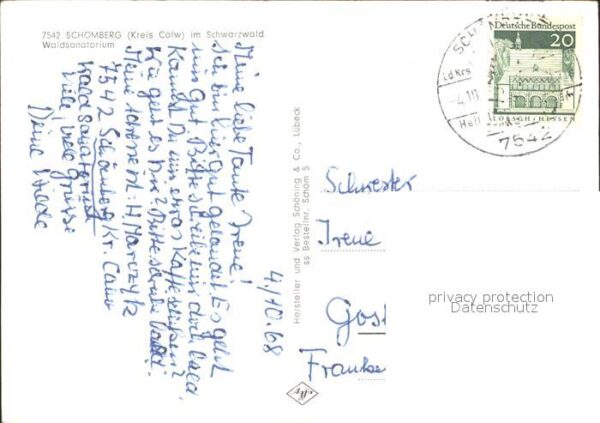 7542 SCHÖMBERG (Kreis Calw) im Schwarzwald
Waldsanatorium
4./10.68
Meine liebe Tante Irene!
Ich bin hier gut gelandet. Es geht
mir gut. Bitte schreibe mir doch bald.
Kannst Du mir etwas Kaffee schicken?
Wie geht es Dir? Bitte schreibe bald!
Meine Adresse ist: H. Marczyk
7542 Schömberg Kr. Calw
Waldsanatorium
Viele, viele Grüsse
Deine
Hersteller und Verlag Schöning & Co., Lübeck
SS Bestellnr. Schöm 5
Deutsche Bundespost
20
LORSCH/HESSEN
Ld.Krs
-4.10
7542
Schwester
Irene
Gost
Franke
privacy protection
Datenschutz